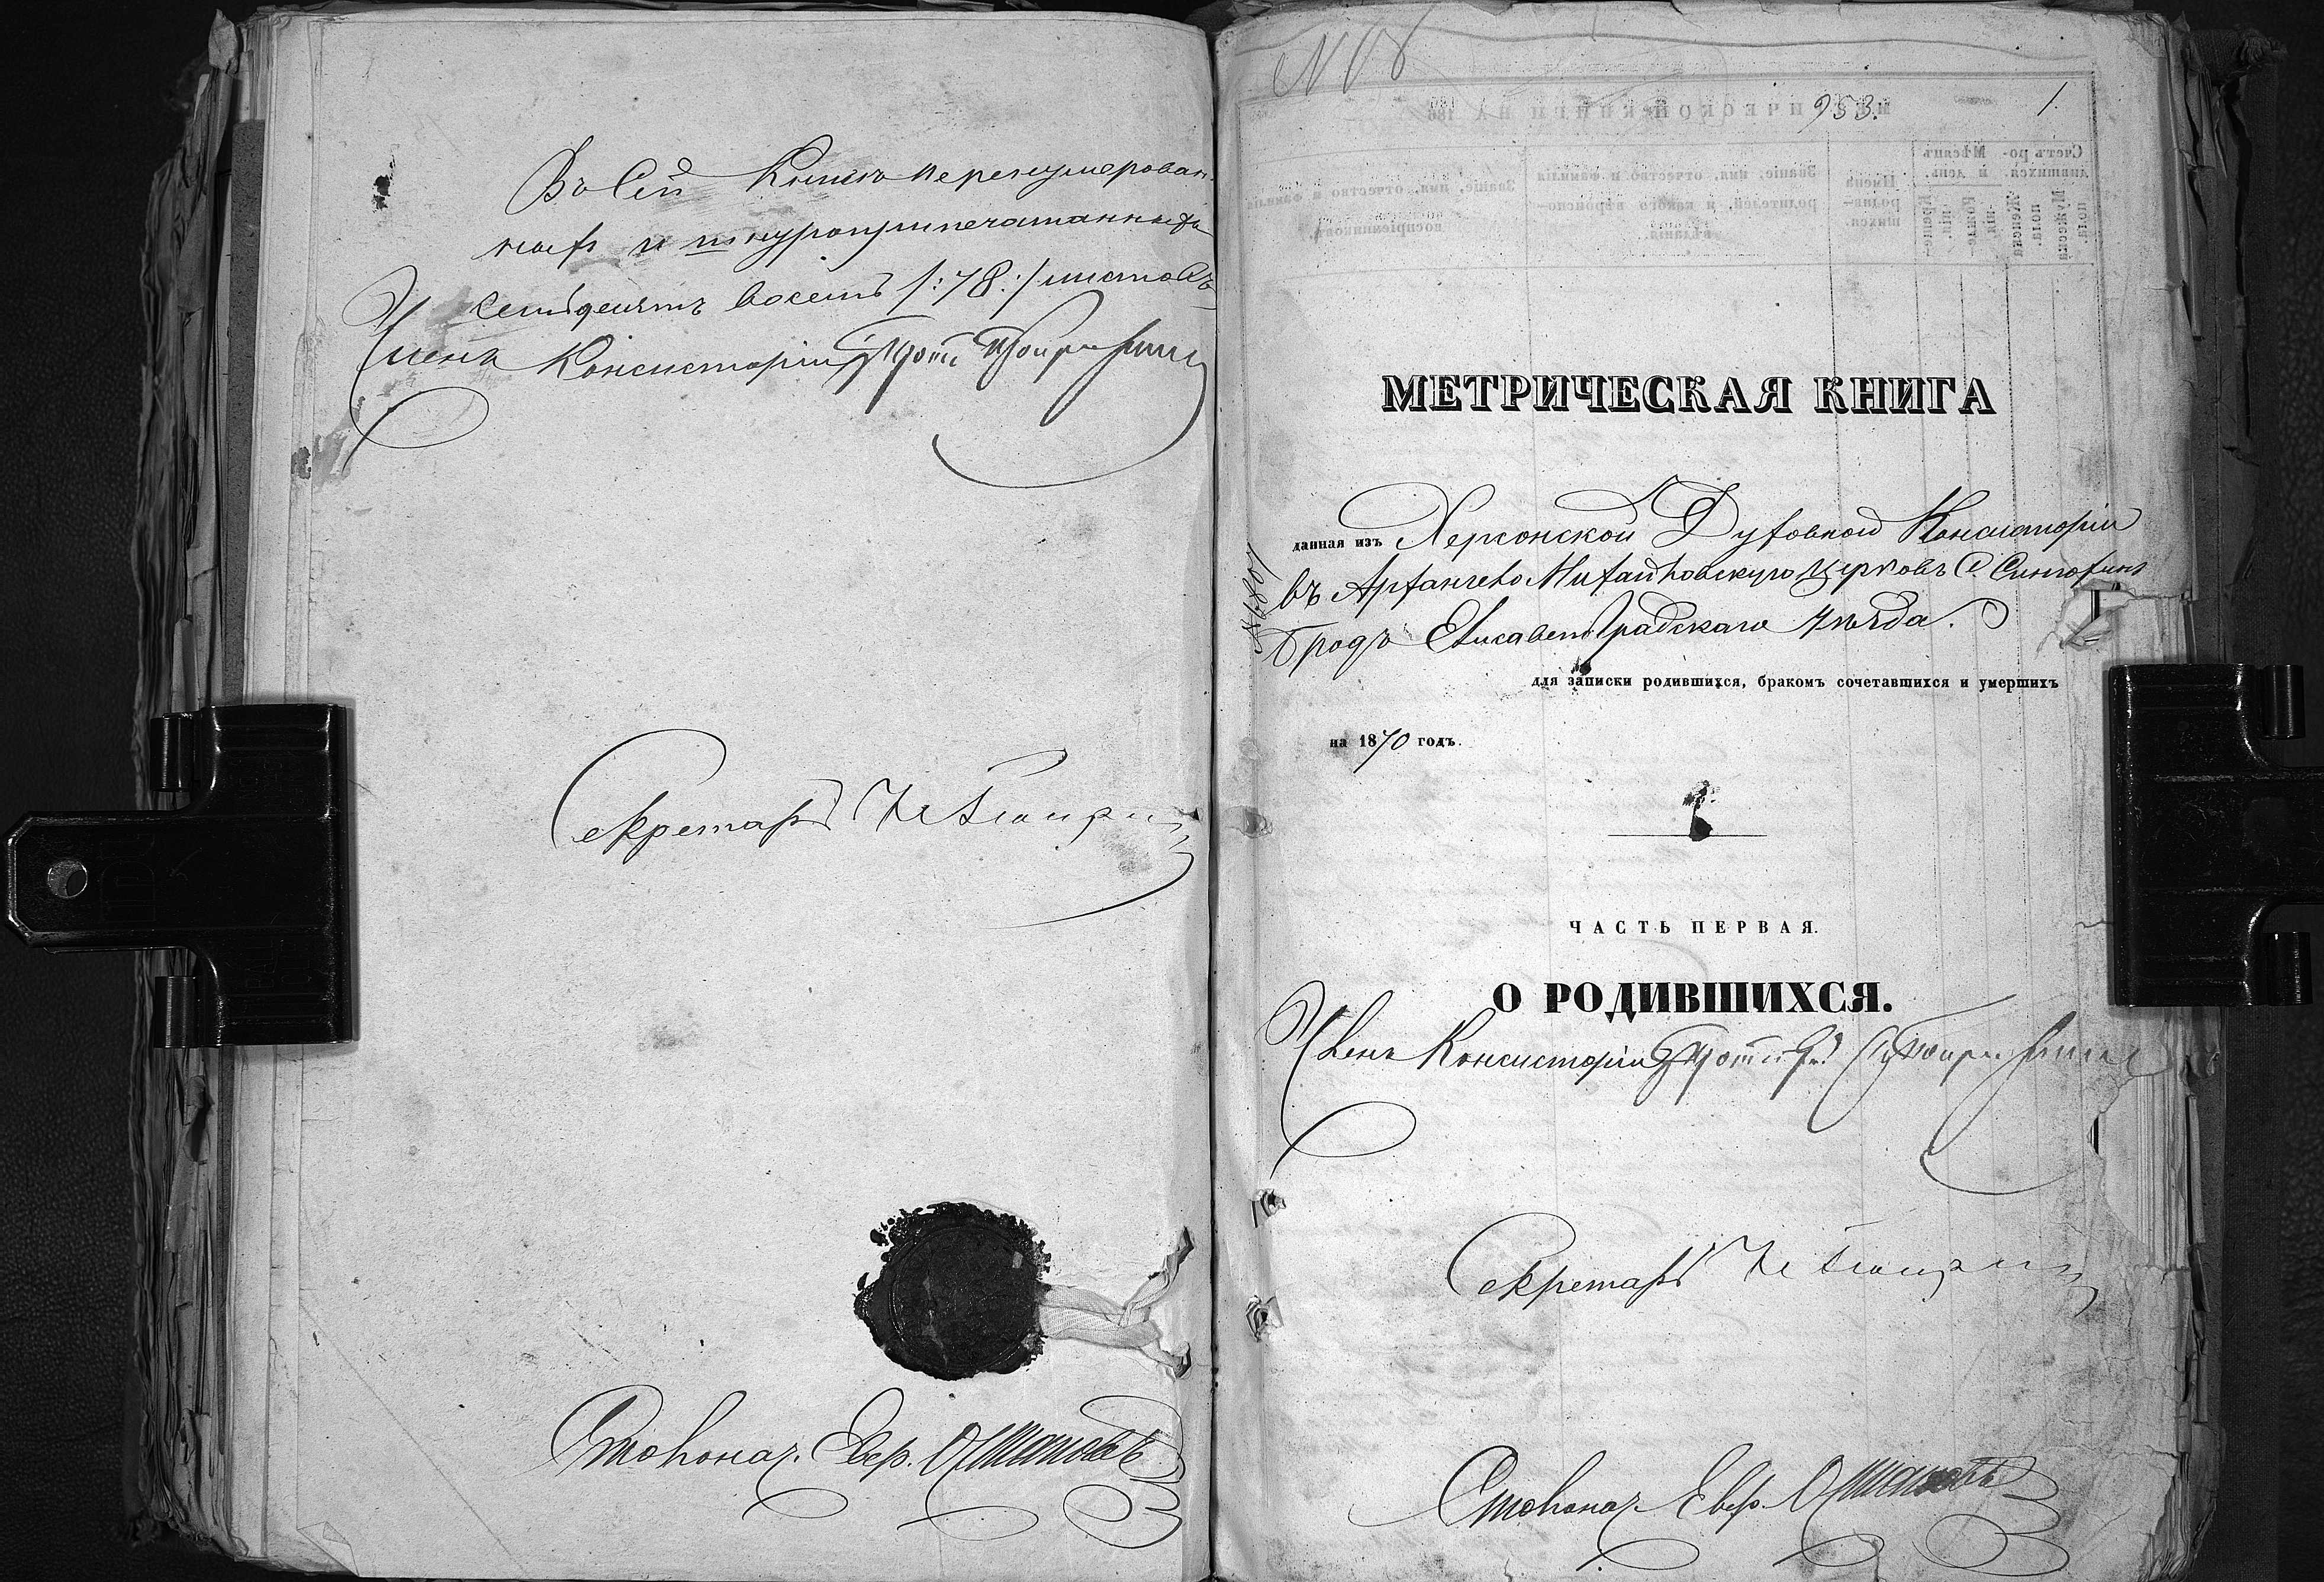 Въ сей Книгѣ перенумерован-
ныхъ и шнуроприпечатанныхъ
семьдесятъ восемь /:78:/ листовъ
Членъ Консисторіи Прот.
Секретарь
Столонач. Евр.
953. 1
МЕТРИЧЕСКАЯ КНИГА
данная изъ Херсонской Духовной Консисторіи
въ Архангело Михайловскую церковь С. Синюхинъ
Бродъ Елисаветградскаго уѣзда.
для записки родившихся, бракомъ сочетавшихся и умершихъ
на 1870 годъ.
ЧАСТЬ ПЕРВАЯ.
О РОДИВШИХСЯ.
Членъ Консисторіи
Секретарь
Столонач Евр.